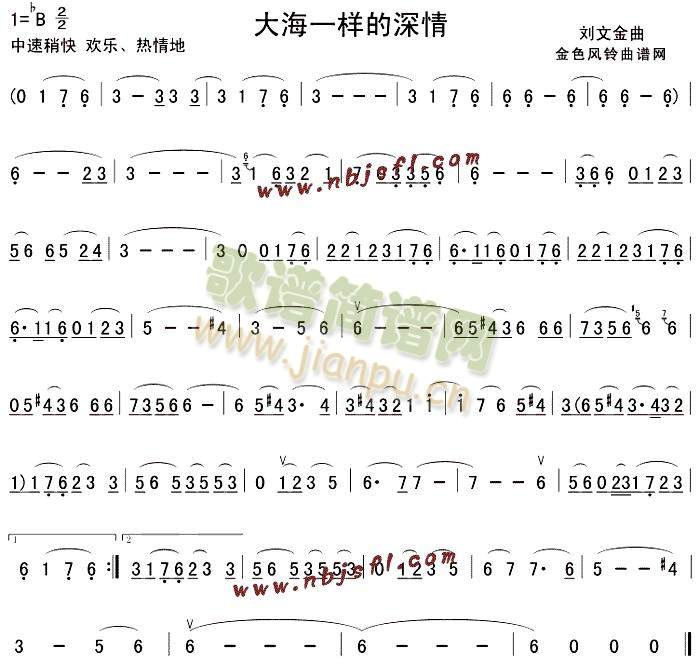 1=♭B 2/2
大海一样的深情
刘文金曲
中速稍快 欢乐、热情地
金色风铃曲谱网
(0 1 7 6 | 3 - 3 3 3 | 3 1 7 6 | 3 - - - | 3 1 7 6 | 6 6 - 6 | 6 - - 6) |
6 - - 2 3 | 3 - - - | 3 1 6 3 2 1 | 7 0 3 3 5 6 | 6 - - - | 3 6 6 0 1 2 3 |
www.nbjsfl.com
5 6 6 5 2 4 | 3 - - - | 3 0 0 1 7 6 | 2 2 1 2 3 1 7 6 | 6· 1 1 6 0 1 7 6 | 2 2 1 2 3 1 7 6 |
歌谱简谱网
www.jianpu.cn
6· 1 1 6 0 1 2 3 | 5 - - #4 | 3 - 5 6 | 6 - - - | 6 5 #4 3 6 6 6 | 7 3 5 6 6 6 |
0 5 #4 3 6 6 6 | 7 3 5 6 6 6 - | 6 5 #4 3· 4 | 3 #4 3 2 1 1 i | i 7 6 5 #4 | 3 (6 5 #4 3· 4 3 2 |
1) 1 7 6 2 3 3 | 5 6 5 3 5 5 3 | 0 1 2 3 5 | 6· 7 7 - | 7 - - 6 | 5 6 0 2 3 1 7 6 |
1. 2.
6 1 7 6 :‖ 3 1 7 6 2 3 3 | 5 6 5 3 5 5 3 | 0 1 2 3 5 | 6 7 7· 6 | 5 - - #4 |
www.nbjsfl.com
3 - 5 6 | 6 - - - | 6 - - - | 6 0 0 0 ‖